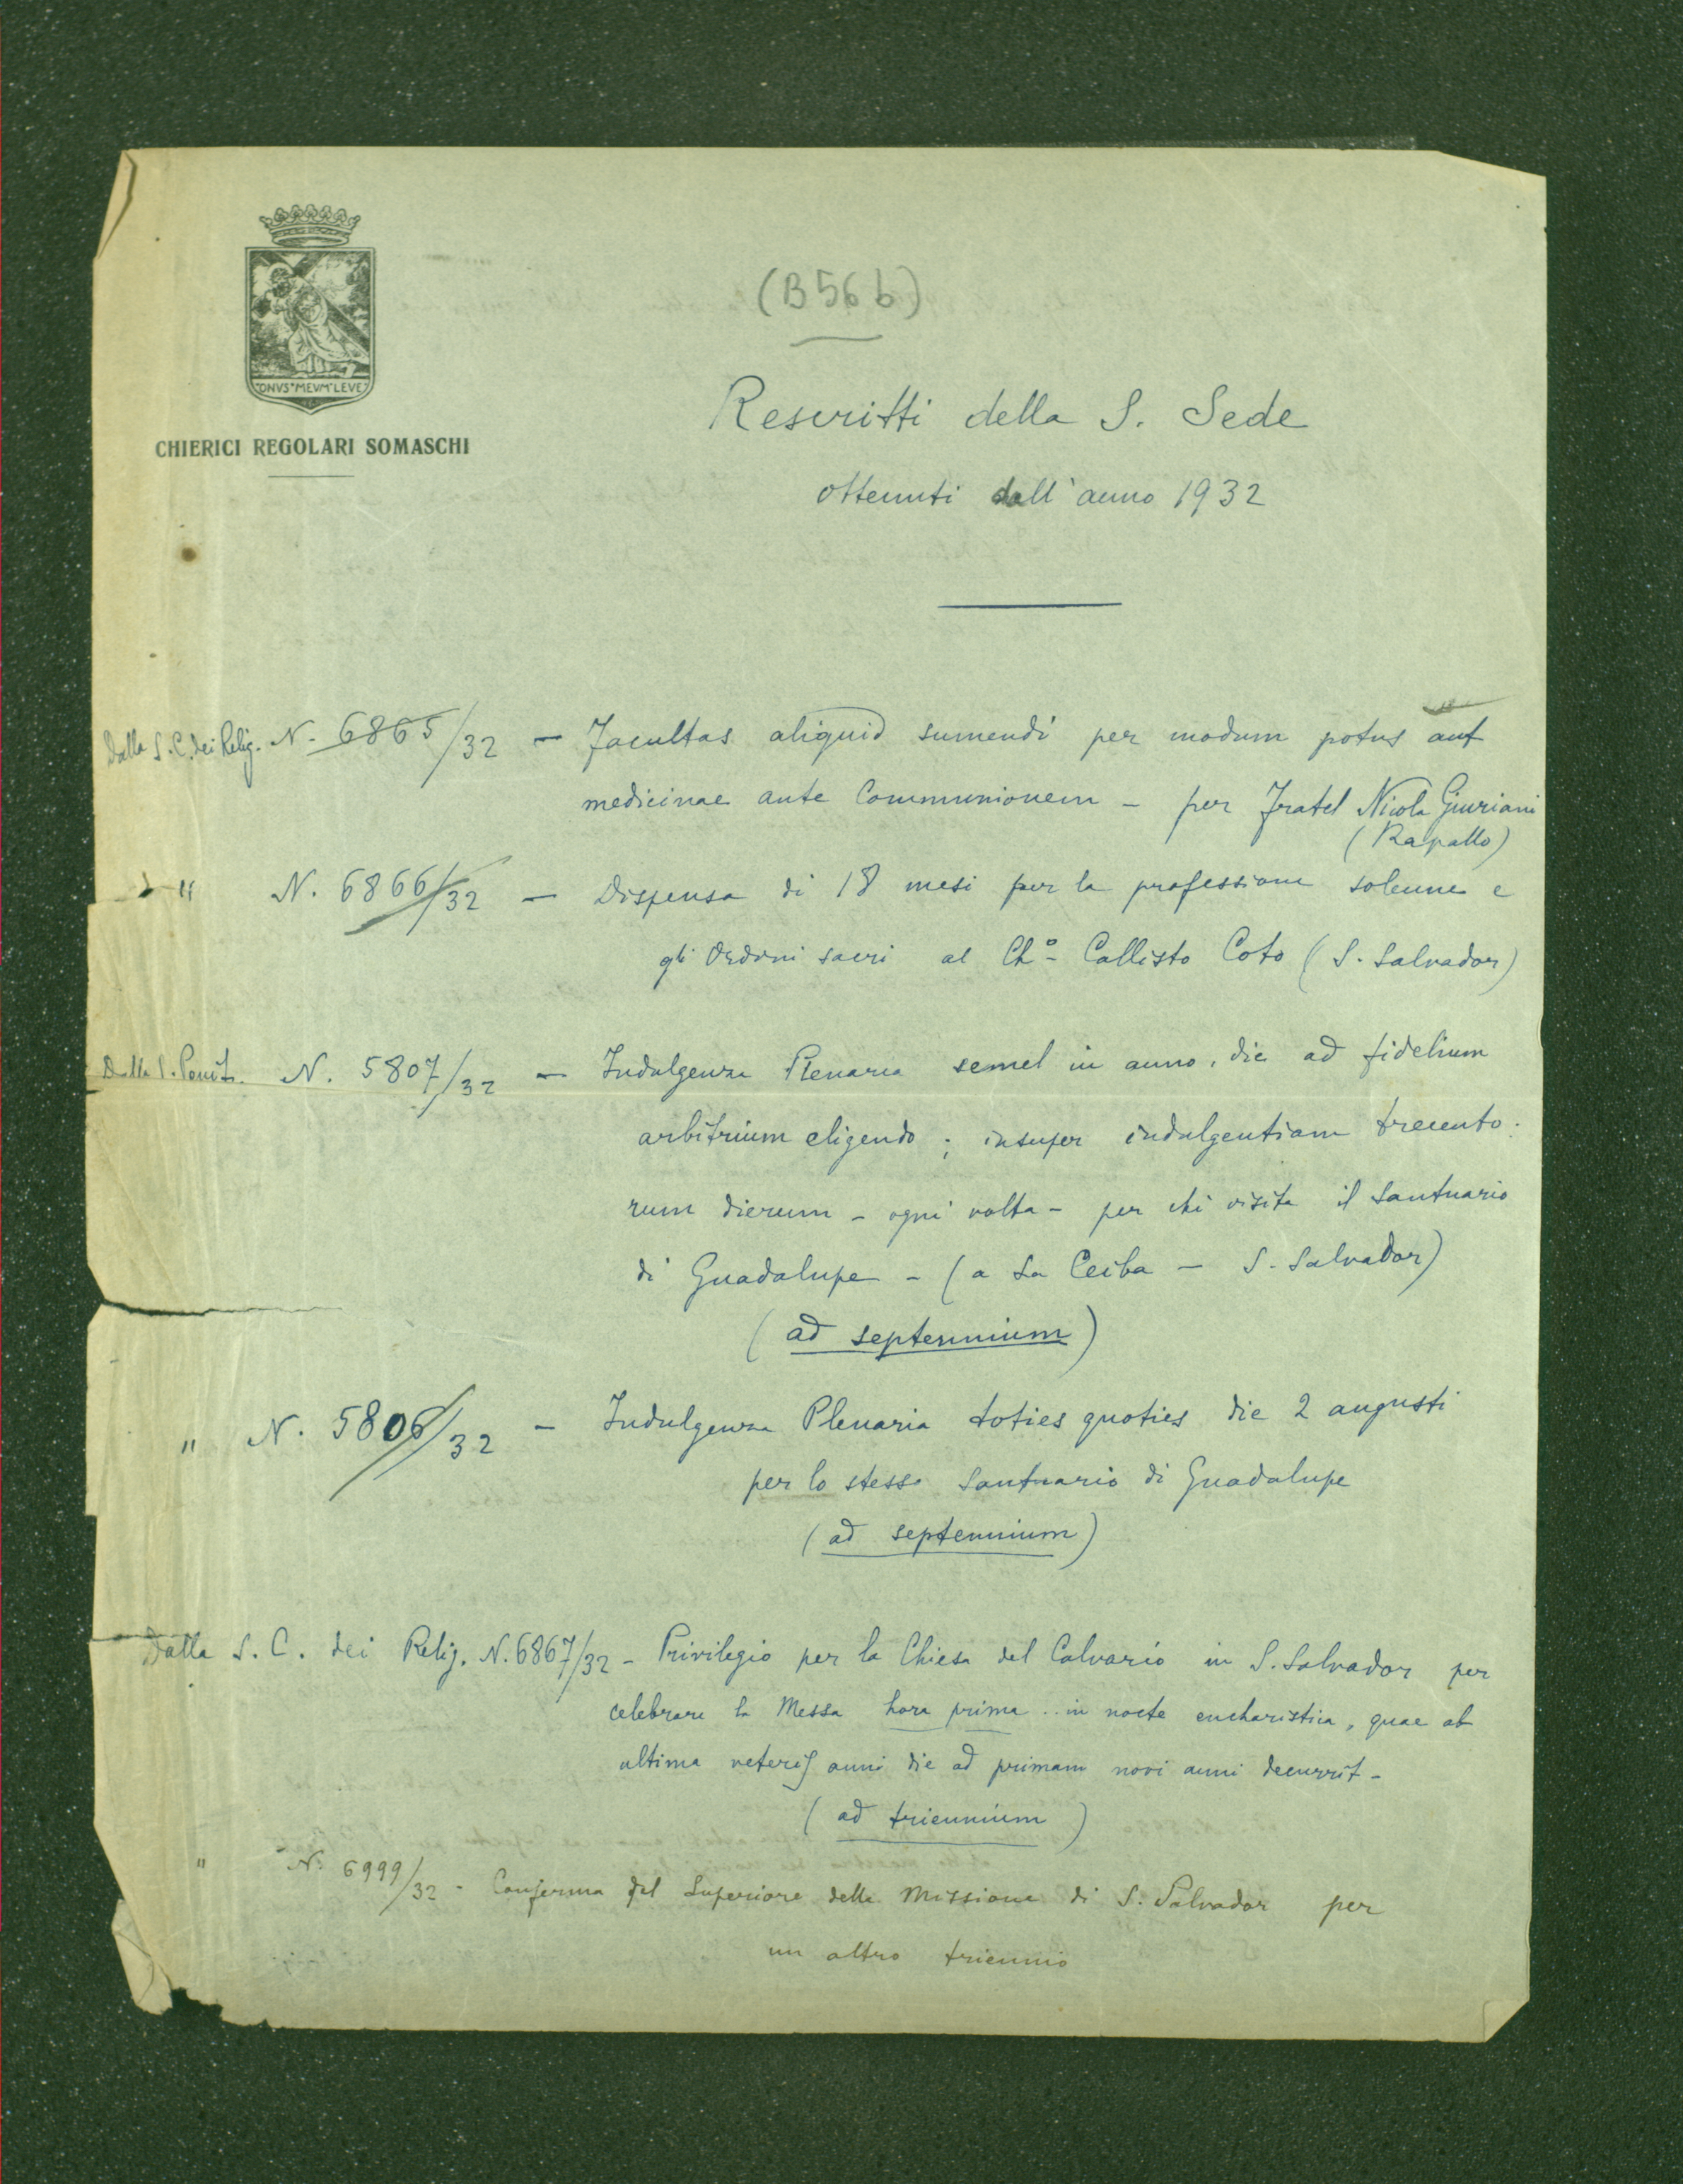 ONVS*MEVM*LEVE
CHIERICI REGOLARI SOMASCHI
(B 56 b)
Rescritti della S. Sede
ottenuti dall'anno 1932
Dalla S. C. dei Relig. N. 6865/32 — Facultas aliquid sumendi per modum potus aut
medicinae ante Communionem - per Fratel Nicola Giuriani
(Rapallo)
" N. 6866/32 — Dispensa di 18 mesi per la professione solenne e
gli Ordini sacri al Ch.º Callisto Coto (S. Salvador)
Dalla S. Penit. N. 5807/32 — Indulgenza Plenaria semel in anno, die ad fidelium
arbitrium eligendo ; insuper indulgentiam trecento-
rum dierum - ogni volta - per chi visita il Santuario
di Guadalupe - (a La Ceiba — S. Salvador)
(ad septennium)
" N. 5806/32 - Indulgenza Plenaria toties quoties die 2 augusti
per lo stesso Santuario di Guadalupe
(ad septennium)
Dalla S. C. dei Relig. N. 6867/32 - Privilegio per la Chiesa del Calvario in S. Salvador per
celebrare la Messa hora prima .. in nocte eucharistica, quae ab
ultima veteris anni die ad primam novi anni decurrit -
(ad triennium)
" N. 6999/32 - Conferma del Superiore della Missione di S. Salvador per
un altro triennio